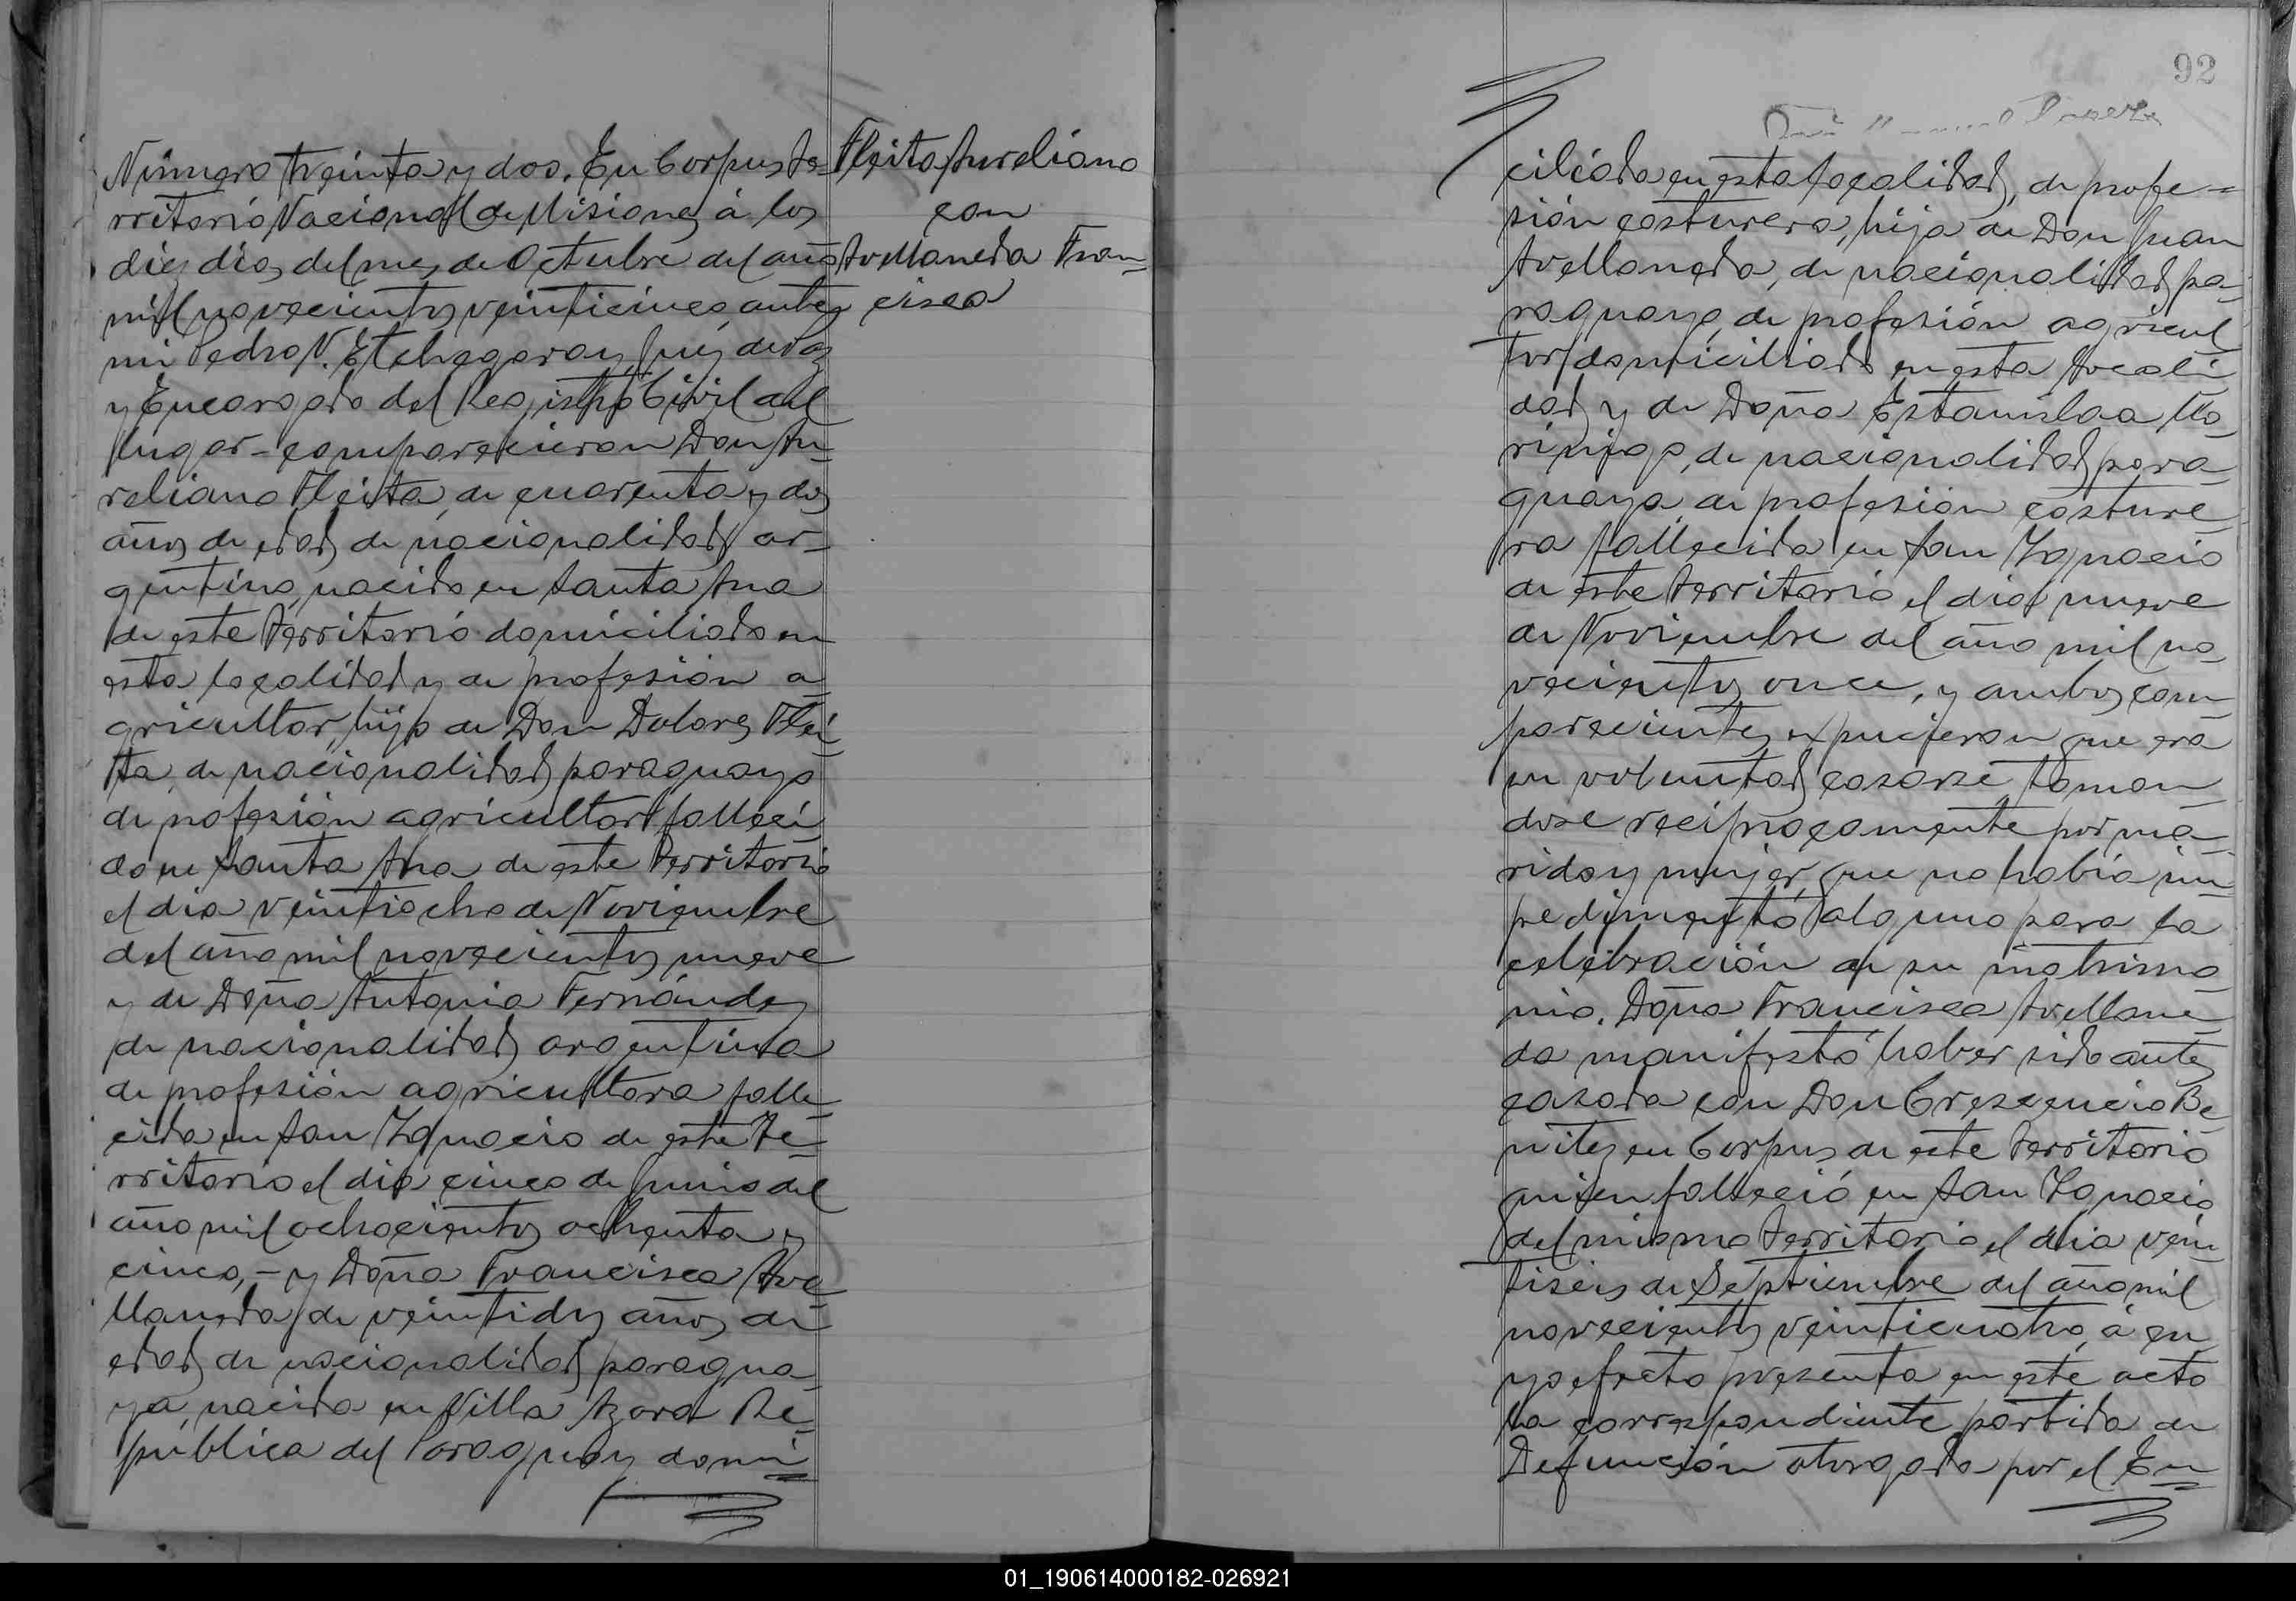 Número treinta y dos. En Corpus Te-
rritorio Nacional de Misiones á los
diez dias del mes de Octubre del año
mil novecientos veinticinco, ante
mi Pedro N. Etchegaray, Juez de Paz
y Encargado del Registro Civil del
lugar - comparecieron Don Au-
reliano Fleita, de cuarenta y dos
años de edad, de nacionalidad ar-
gentino, nacido en Santa Ana
de este Territorio domiciliado en
esta localidad y de profesión a-
gricultor, hijo de Don Dolores Flei-
ta, de nacionalidad paraguayo
de profesión agricultor falleci-
do en Santa Ana de este Territorio
el dia veintiocho de Noviembre
del año mil novecientos nueve
y de Doña Antonia Fernández
de nacionalidad argentina
de profesión agricultora falle-
cida en San Ignacio de este Te-
rritorio el dia cinco de Junio del
año mil ochocientos ochenta y
cinco, - y Doña Francisca Ave-
llaneda, de veintidos años de
edad, de nacionalidad paragua-
ya, nacida en Villa Azara Re-
pública del Paraguay domi=
Fleita Aureliano
con
Avellaneda Fran-
cisca
92
ciliada en esta localidad, de profe=
sión costurera, hija de Don Juan
Avellaneda, de nacionalidad pa-
raguayo, de profesión agricul-
tor, domiciliado en esta locali-
dad, y de Doña Estanislaa Mo-
rínigo, de nacionalidad para-
guaya, de profesión costure-
ra fallecida en San Ignacio
de este Territorio el dia nueve
de Noviembre del año mil no-
vecientos once, y ambos com-
parecientes expusieron que era
su voluntad casarse toman-
dose reciprocamente por ma-
rido y mujer, que no habia im-
pedimento alguno para la
celebración de su matrimo-
nio. Doña Francisca Avellane-
da manifestó haber sido antes
casada con Don Crescencio Be-
nitez en Corpus de este Territorio
quien falleció en San Ignacio
del mismo Territorio el dia vein-
tiseis de Septiembre del año mil
novecientos veinticuatro, á cu-
yo efecto presenta en este acto
la correspondiente partida de
Defunción otorgada por el En=
01_190614000182-026921